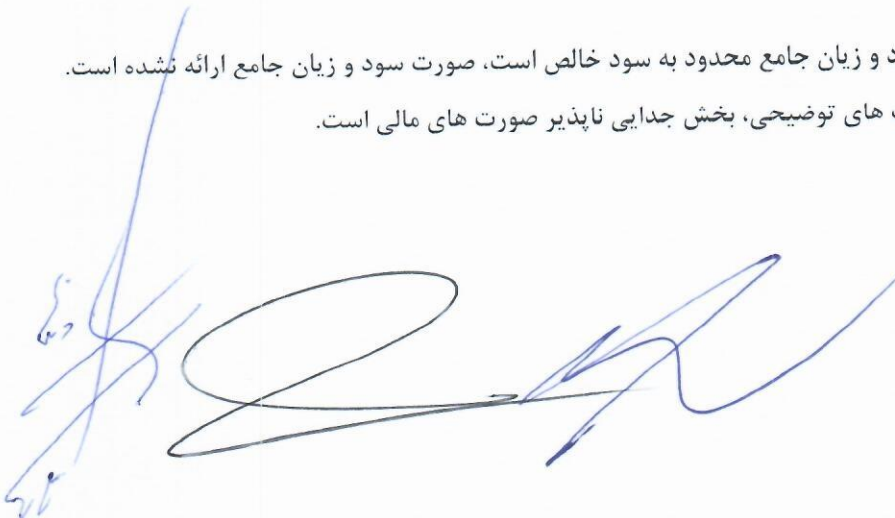 و زیان جامع محدود به سود خالص است، صورت سود و زیان جامع ارائه نشده است.
های توضیحی، بخش جدایی ناپذیر صورت های مالی است.